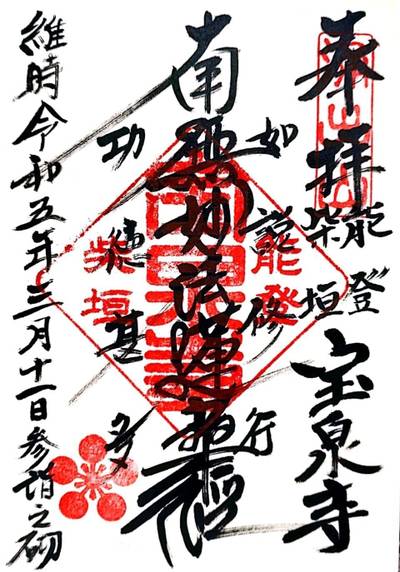 奉拝
能登
柴垣
宝泉寺
如説修行
南無妙法蓮華経
功徳甚多
維時令和五年三月十一日参詣之砌
能登
柴垣